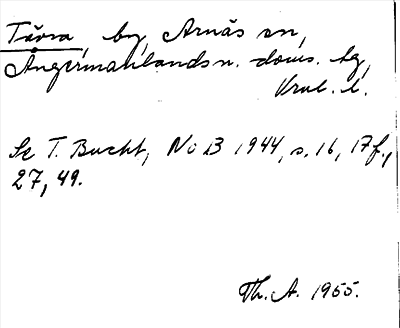 Tävra, by, Arnäs sn,
Ångermanlands n. doms. tg,
Vnl. l.
Se T. Bucht, NoB 1944, s. 16, 17f.,
27, 49.
Th. A. 1955.